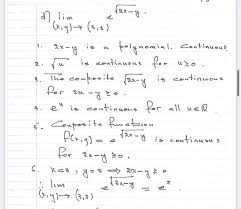 d) lim e^√(2x-y)
(x,y)→(3,2)
1. 2x-y is a polynomial. Continuous
2. √u is continuous for u≥0.
3. The composite √(2x-y) is continuous
for 2x-y≥0.
4. e^u is continuous for all u∈ℝ
5. Composite function
f(x,y) = e^√(2x-y) is continuous
for 2x-y≥0.
6. x=3, y=2 ⟹ 2x-y≥0
∴ lim e^√(2x-y) = e^2.
(x,y)→(3,2)